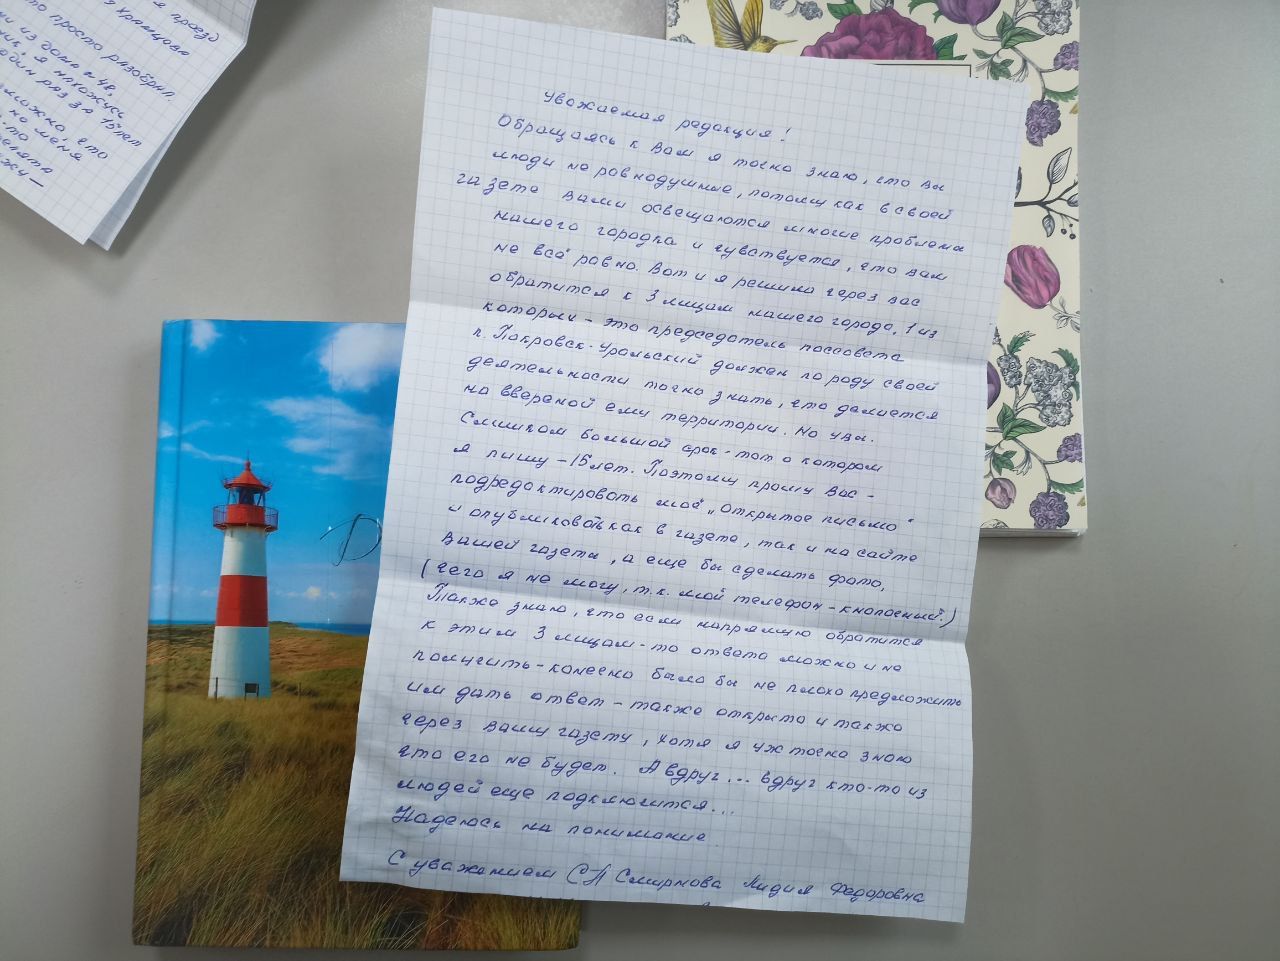 я проезд
у Храмцова
то просто разобрал.
и из дома № 48,
я нахожусь
один раз за 15 лет
можно, что
но меня
Уважаемая редакция!
Обращаясь к Вам я точно знаю, что вы
люди не равнодушные, потому как в своей
газете Вами освещаются многие проблемы
нашего городка и чувствуется, что вам
не всё равно. Вот и я решила через вас
обратится к 3 лицам нашего города, 1 из
которых - это председатель поссовета
п. Покровск-Уральский должен по роду своей
деятельности точно знать, что делается
на ввереной ему территории. Но увы.
Слишком большой срок - тот о котором
я пишу - 15 лет. Поэтому прошу Вас -
подредактировать моё „открытое письмо"
и опубликовать как в газете, так и на сайте
Вашей газеты, а еще бы сделать фото,
(чего я не могу, т.к. мой телефон - кнопочный.)
Также знаю, что если напрямую обратится
к этим 3 лицам - то ответа можно и не
получить - конечно было бы не плохо предложить
им дать ответ - также открыто и также
через вашу газету, хотя я уж точно знаю
что его не будет. А вдруг... вдруг кто-то из
людей еще подключится...
Надеюсь на понимание.
С уважением Смирнова Лидия Федоровна